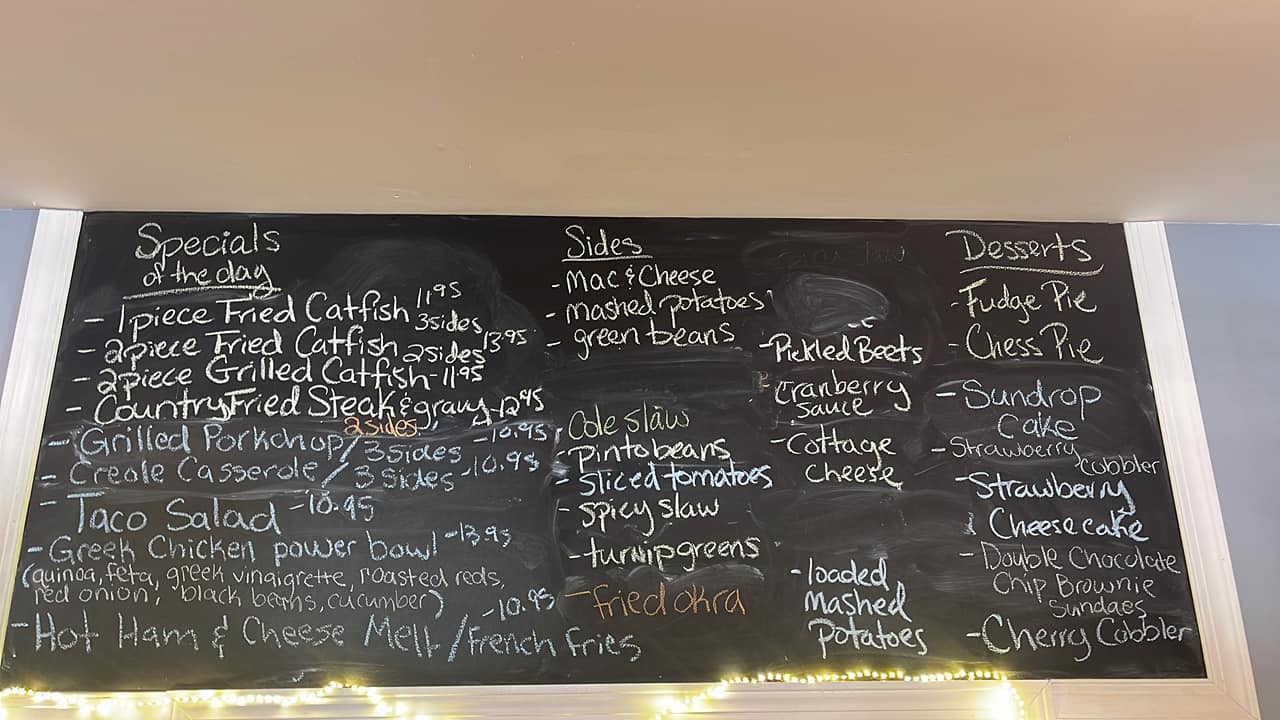 Specials
of the day
- 1piece Fried Catfish 11.95
3sides
- 2piece Fried Catfish 2sides 13.95
- 2piece Grilled Catfish - 11.95
- Country Fried Steak & gravy - 12.95
2sides
- Grilled Porkchop / 3sides - 10.95
- Creole Casserole / 3 sides - 10.95
- Taco Salad - 10.95
- Greek Chicken power bowl - 13.95
(quinoa, feta, greek vinaigrette, roasted reds,
red onion, black beans, cucumber)
- Hot Ham & Cheese Melt / French fries - 10.95
Sides
- Mac & Cheese
- mashed potatoes
- green beans
Cole slaw
- Pinto beans
- sliced tomatoes
- spicy slaw
- turnip greens
- fried okra
- Pickled Beets
- Cranberry
sauce
- Cottage
Cheese
- loaded
Mashed
Potatoes
Desserts
- Fudge Pie
- Chess Pie
- Sundrop
Cake
- Strawberry
cobbler
- Strawberry
Cheesecake
- Double Chocolate
Chip Brownie
Sundaes
- Cherry Cobbler